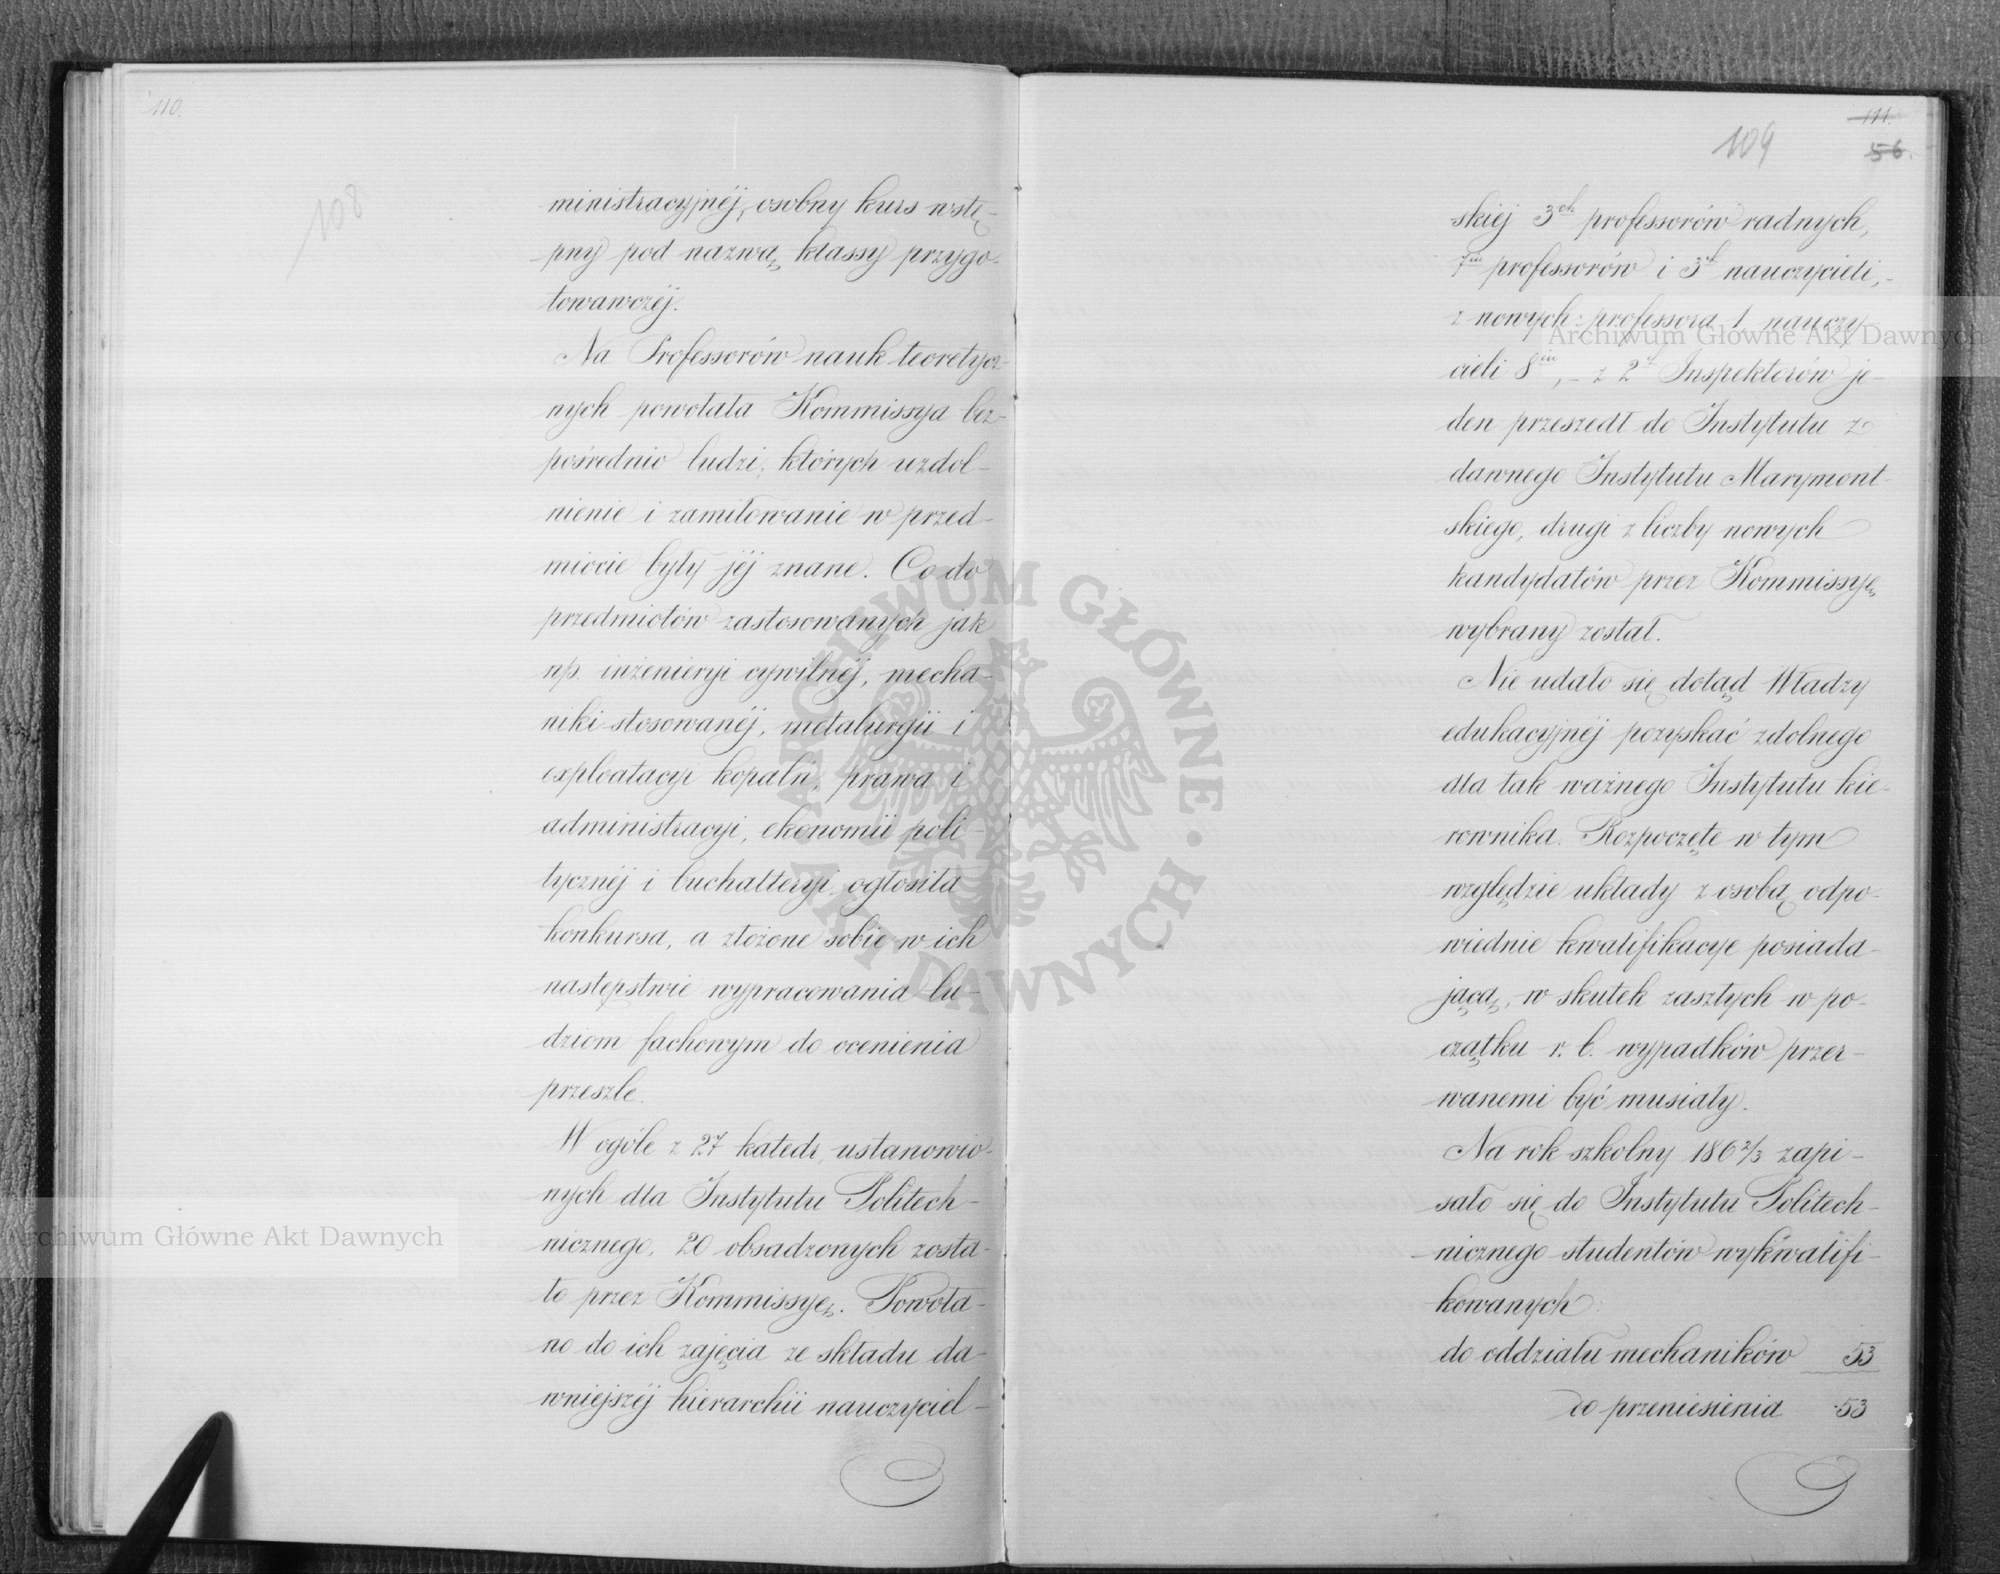 110.
108
ministracyjnéj, osobny kurs wstę-
pny pod nazwą klassy przygo-
towawczéj.
Na Professorów nauk teoretycz-
nych powołała Kommissya bez-
pośrednio ludzi, których uzdol-
nienie i zamiłowanie w przed-
miocie były jéj znane. Co do
przedmiotów zastosowanych jak
np. inżenieryi cywilnéj, mecha-
niki stosowanéj, metalurgii i
exploatacyi kopalń, prawa i
administracyi, ekonomii poli-
tycznéj i buchalteryi ogłosiła
konkursa, a złożone sobie w ich
następstwie wypracowania lu-
dziom fachowym do ocenienia
przeszle.
W ogóle z 27 katedr, ustanowio-
nych dla Instytutu Politech-
nicznego, 20 obsadzonych zosta-
ło przez Kommissyę. Powoła-
no do ich zajęcia ze składu da-
wniejszéj hierarchii nauczyciel-
111.
109
56.
skiéj 3ch professorów radnych,
7iu professorów i 3ch nauczycieli,-
z nowych: professora 1, nauczy
cieli 8iu,- z 2ch Inspektorów je-
den przeszedł do Instytutu z
dawnego Instytutu Marymont-
skiego, drugi z liczby nowych
kandydatów przez Kommissyę
wybrany został.
Nie udało się dotąd Władzy
edukacyjnéj pozyskać zdolnego
dla tak ważnego Instytutu kie-
rownika. Rozpoczęte w tym
względzie układy z osobą odpo-
wiednie kwalifikacye posiada-
jącą, w skutek zaszłych w po-
czątku r. b. wypadków przer-
wanemi być musiały.
Na rok szkolny 186 2/3 zapi-
sało się do Instytutu Politech-
nicznego studentów wykwalifi-
kowanych:
do oddziału mechaników 53
do przeniesienia 53
Archiwum Główne Akt Dawnych
ARCHIWUM GŁÓWNE · AKT DAWNYCH ·
Archiwum Główne Akt Dawnych